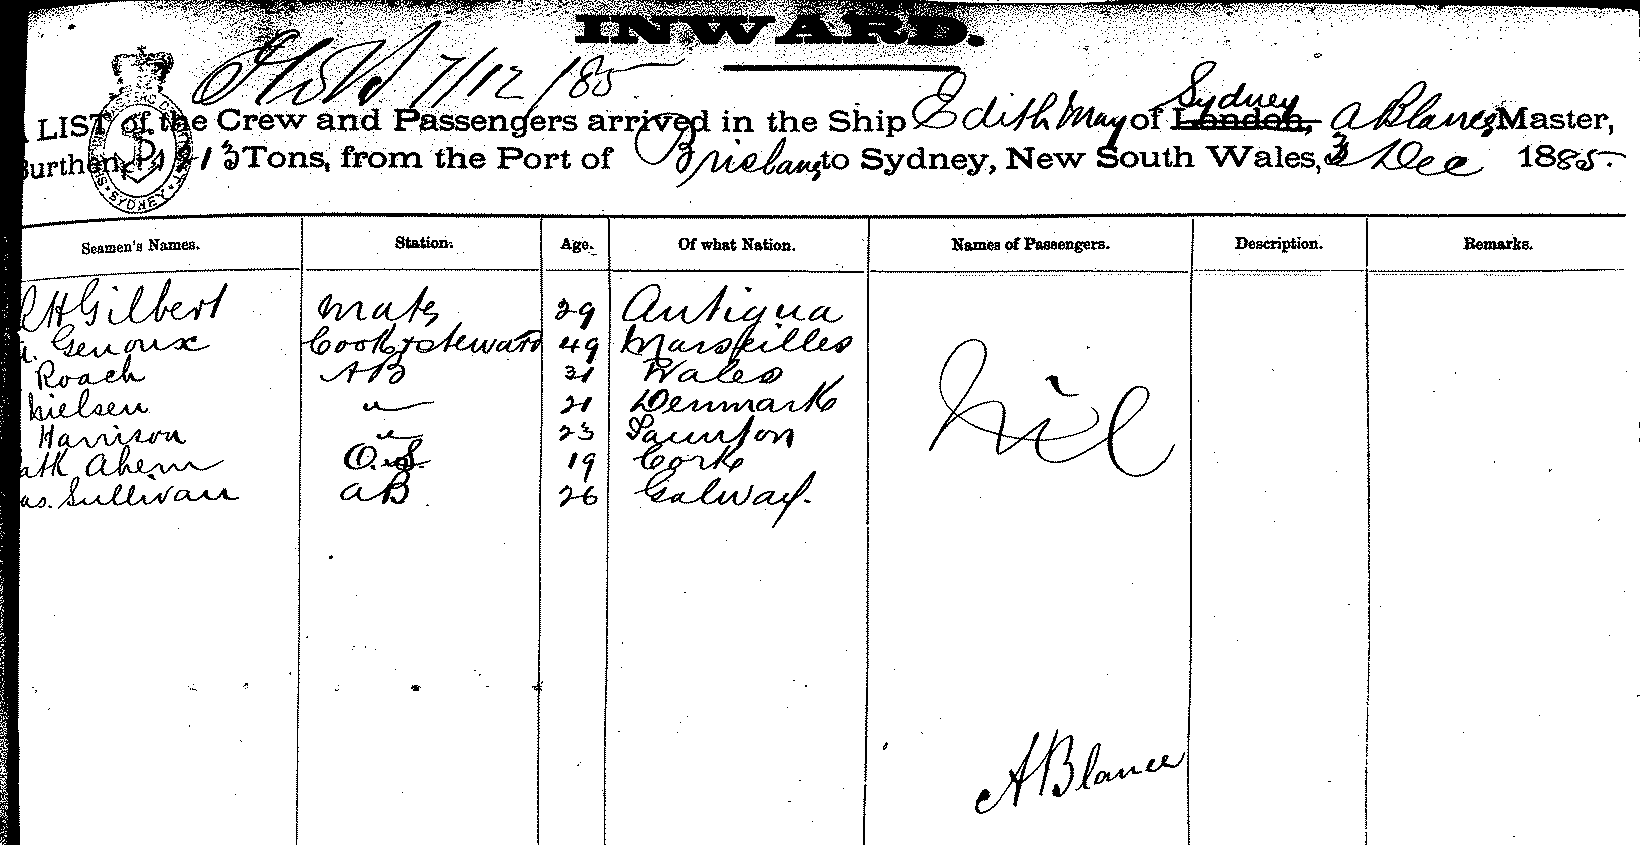 INWARD.
7/12/85
LIST of the Crew and Passengers arrived in the Ship Edith May of Sydney London, A Blance Master,
Burthen 213 Tons, from the Port of Brisbane to Sydney, New South Wales, 3 Dec 1885.
Seamen's Names. Station. Age. Of what Nation. Names of Passengers. Description. Remarks.
H Gilbert Mate 29 Antigua
Genoux Cook & Steward 49 Marseilles
Roach AB 31 Wales
Nielsen " 21 Denmark
Harrison " 23 Taunton
Ahern O.S. 19 Cork
Sullivan AB 26 Galway.
Nil
A Blance
SYDNEY